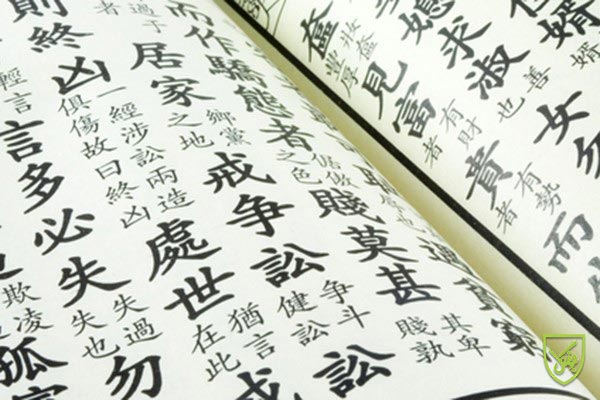 婿
婿
媳求淑善也女勿
奩妝奩豐厚見富有財者貴有勢者而
而作驕態者倨傲之色賤莫甚其卑賤孰
過于者居家鄉黨之地戒争訟争斗健訟訟
則終凶一經涉訟兩造俱傷故曰終凶處世猶言在此戒
輕言言多必失失過失也勿
欺凌孤